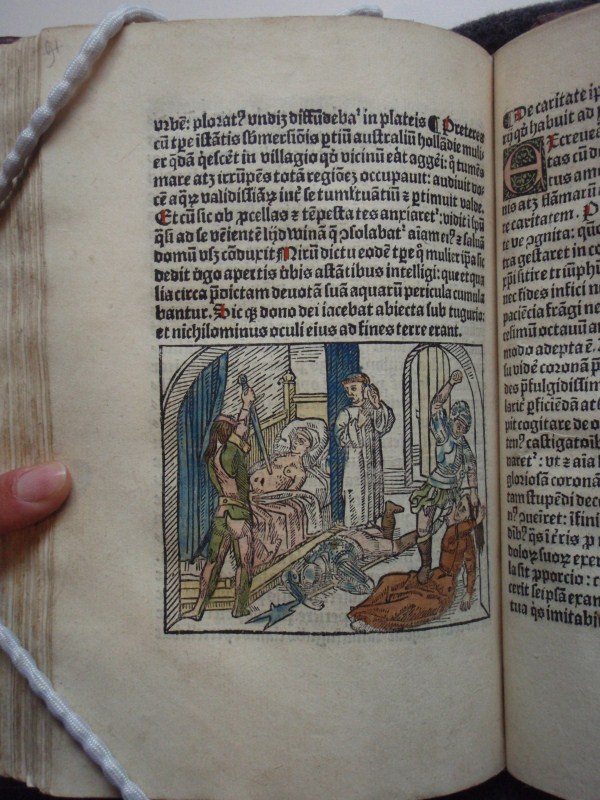 vrbē: plorat⁹ vndiꝗ diffūdebaᵗ in plateis ¶ Pretere a
cū tp̄e īstātis sb̄mersiōis ꝑtiū australiū hollādie muli
er q̄dā q̄escēt in villagio qō vicinū eāt aggēi: q̄ tumēs
mare atꝫ irrūpēs totā regiōeꝫ occupauit: audiuit vo
cē aq̄ꝝ validissīaꝝ int̄ se tumltuātiū ⁊ ꝑtimuit valde.
Et cū sic ob ꝓcellas ⁊ tēpesta tes anxiaretᵗ: vidit ī spū
qͥsi ad se veniētē lijdwinā q̄ ꝯsolabatᵗ
domū vsꝫ cōduxit Mirū dictu eodē tp̄e qͦ mulier ip̄a sic
dedit v̄go apertis v̄bis astātibus intelligi: que et qua
lia circa p̄dictam deuotā suā aquarū pericula cumula
bantur. Sic qꝫ dono dei iacebat abiecta sub tugurio:
et nichilominus oculi eius ad fines terre erant.
¶ De caritate ip̄
qō habuit ad
Ecreue
tas cū d
ctus am
nis atꝫ flāmarū
te caritatem.
te ve ꝯgnita: quō
ta gestaret in co
xp̄i sitire triūphi
nec fides infici n
paciēcia frāgi ne
cesimū octauū an
modo adepta ē.
su vidē coronā p̄
des p̄fulgidissim
larit̄ ꝑficiēdā at
pit cogitare de o
ten⁹ castigatoib
uaret⁹: vt ⁊ aīa
gloriosā coronā
tam stupēdi dece
n⁹ ꝯueiret: īfini
dib⁹ qͥs īt̄xis ꝓ
dolor suoꝝ exer
la sit ꝓporcio: c
cerit seipsā exan
tua qͥs imitabit